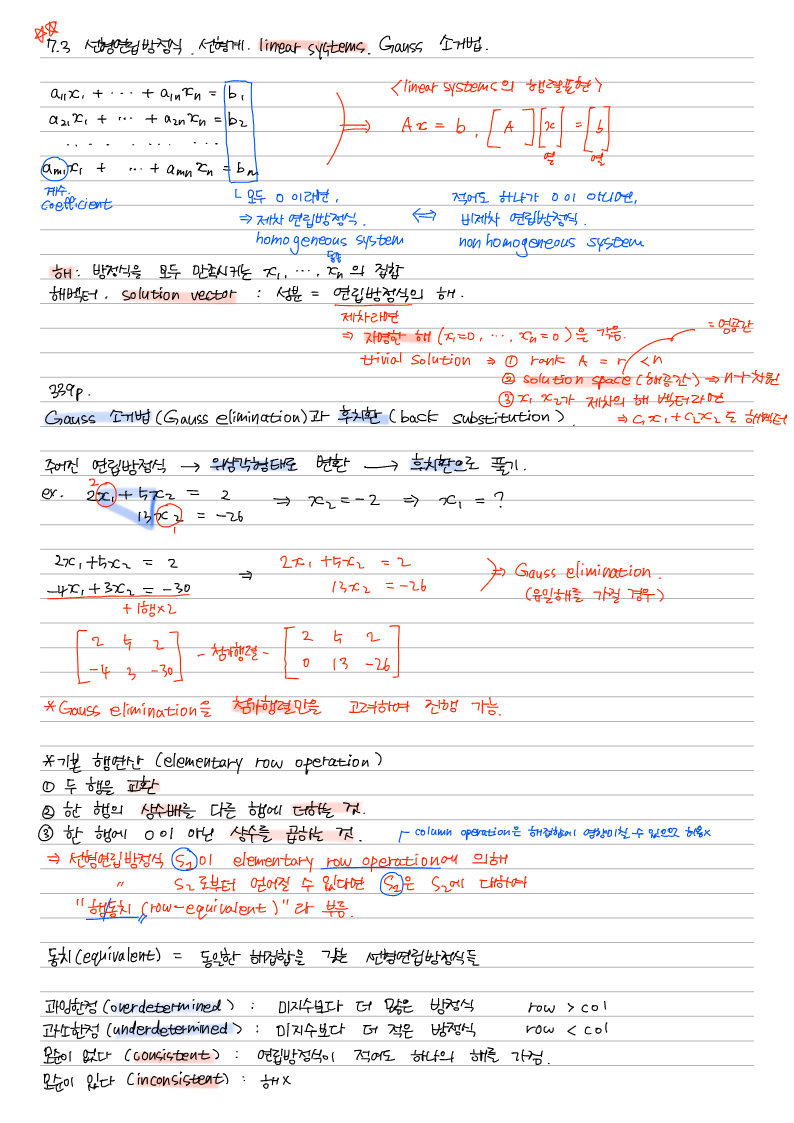 7.3 선형연립방정식. 선형계. linear systems. Gauss 소거법.
a11x1 + ··· + a1nxn = b1
a21x1 + ··· + a2nxn = b2
·· ··· ··· ···
am1x1 + ··· + amnxn = bm
계수.
coefficient
<linear systems의 행렬표현>
⇒ Ax = b, [A][x] = [b]
열 열
모두 0 이라면,
⇒ 제차 연립방정식.
homogeneous system
⇔
적어도 하나가 0이 아니면,
비제차 연립방정식.
nonhomogeneous system
해: 방정식을 모두 만족시키는 x1, ···, xn 의 집합
해벡터. solution vector : 성분 = 연립방정식의 해.
제차라면
⇒ 자명한 해 (x1=0, ···, xn=0)을 가짐.
trivial solution ⇒ ① rank A = r < n
② solution space (해공간) ⇒ n-r차원
= 영공간
③ x1 x2가 제차의 해 벡터라면
⇒ c1x1 + c2x2 도 해벡터
339p.
Gauss 소거법 (Gauss elimination)과 후치환 (back substitution).
주어진 연립방정식 → 위삼각형태로 변환 → 후치환으로 풀기.
ex. 2x1 + 5x2 = 2 ⇒ x2 = -2 ⇒ x1 = ?
13x2 = -26
2x1 + 5x2 = 2 ⇒ 2x1 + 5x2 = 2
-4x1 + 3x2 = -30 13x2 = -26
+ 1행×2
⇒ Gauss elimination.
(유일해를 가질 경우)
[2 5 2 - 첨가행렬 - [2 5 2
-4 3 -30] 0 13 -26]
*Gauss elimination을 첨가행렬만을 고려하여 진행 가능.
*기본 행연산 (elementary row operation)
① 두 행을 교환
② 한 행의 상수배를 다른 행에 더하는 것.
③ 한 행에 0이 아닌 상수를 곱하는 것.
column operation은 해집합에 영향미칠 수 있으므로 허용x
⇒ 선형연립방정식 S1이 elementary row operation에 의해
〃 S2로부터 얻어질 수 있다면 S1은 S2에 대하여
"행동치 (row-equivalent)"라 부름.
동치(equivalent) = 동일한 해집합을 갖는 선형연립방정식들
과잉한정 (overdetermined) : 미지수보다 더 많은 방정식 row > col
과소한정 (underdetermined) : 미지수보다 더 적은 방정식 row < col
모순이 없다 (consistent) : 연립방정식이 적어도 하나의 해를 가짐.
모순이 있다 (inconsistent) : 해x